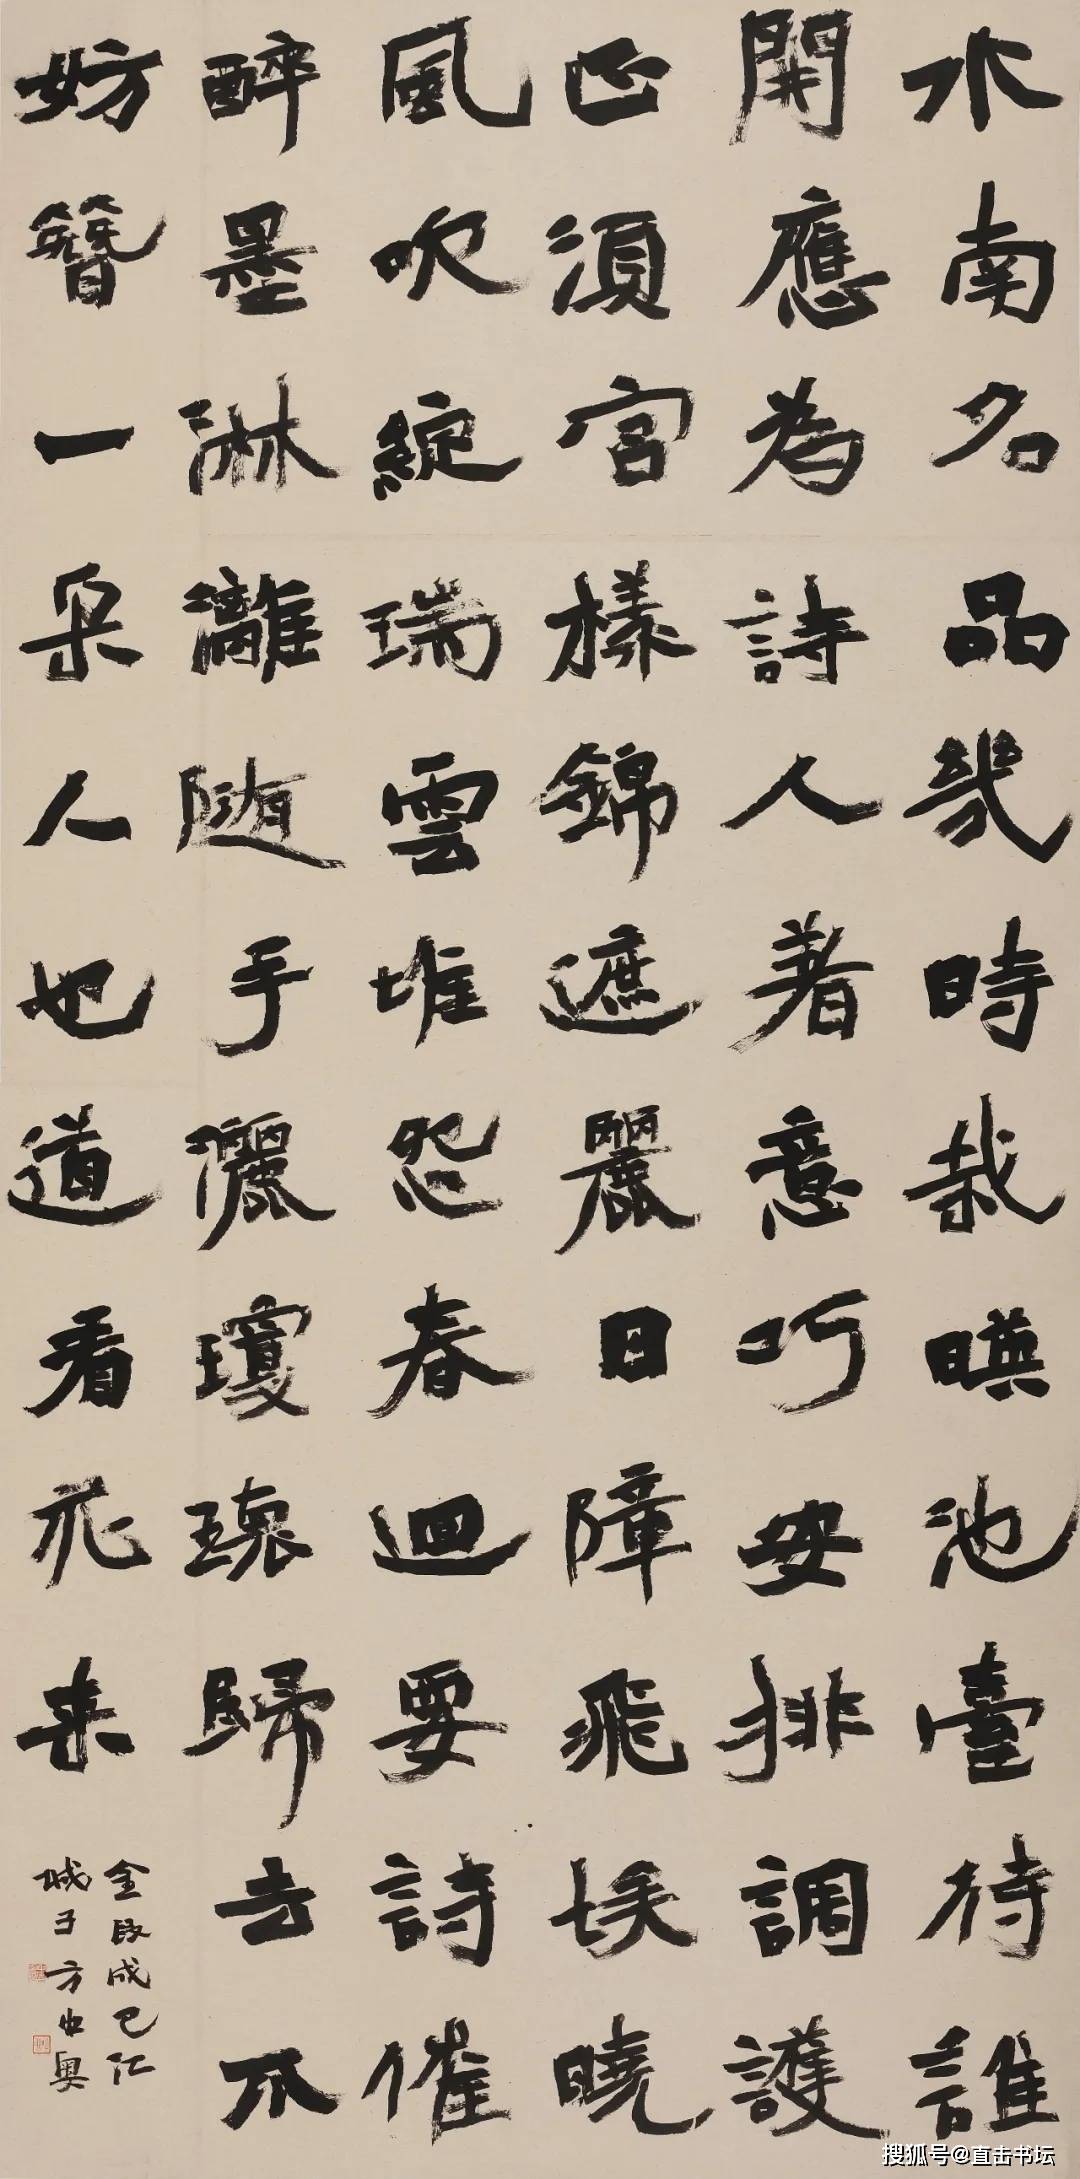 水南名品幾時栽暎池臺待誰
開應為詩人著意巧安排調護
正須宮樣錦遮麗日障飛埃曉
風吹綻瑞雲堆怨春迴要詩催
醉墨淋灕随手灑瓊瑰歸去不
妨簪一朵人也道看花来
金段成己江
城子方奥
搜狐号@直击书坛